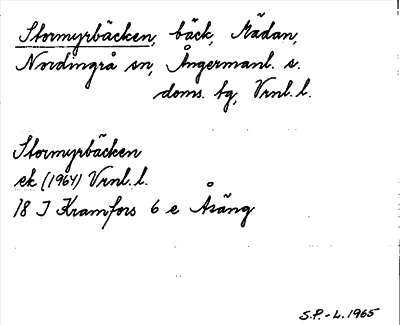 Stormyrbäcken, bäck, Mädan,
Nordingrå sn, Ångermanl. s.
doms. tg, Vrnl. l.
Stormyrbäcken
ek (1964) Vrnl. l.
18 J Kramfors 6 e Åsäng
S.P.-L. 1965